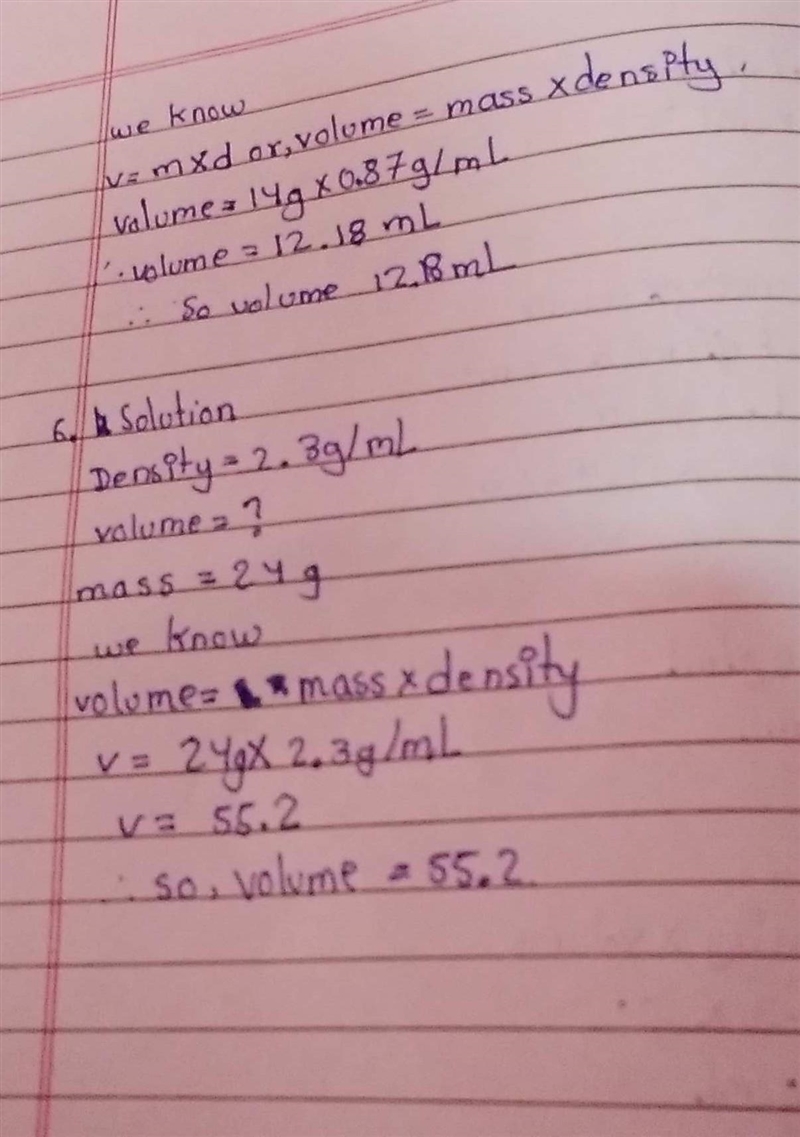 we know
v= m x d or, volume = mass x density.
volume = 14g x 0.87g/mL
∴ volume = 12.18 mL
∴ So volume 12.18mL
6. Solution
Density = 2.3g/mL
volume = ?
mass = 24 g
we know
volume = mass x density
v = 24g x 2.3g/mL
v = 55.2
∴ so, volume = 55.2